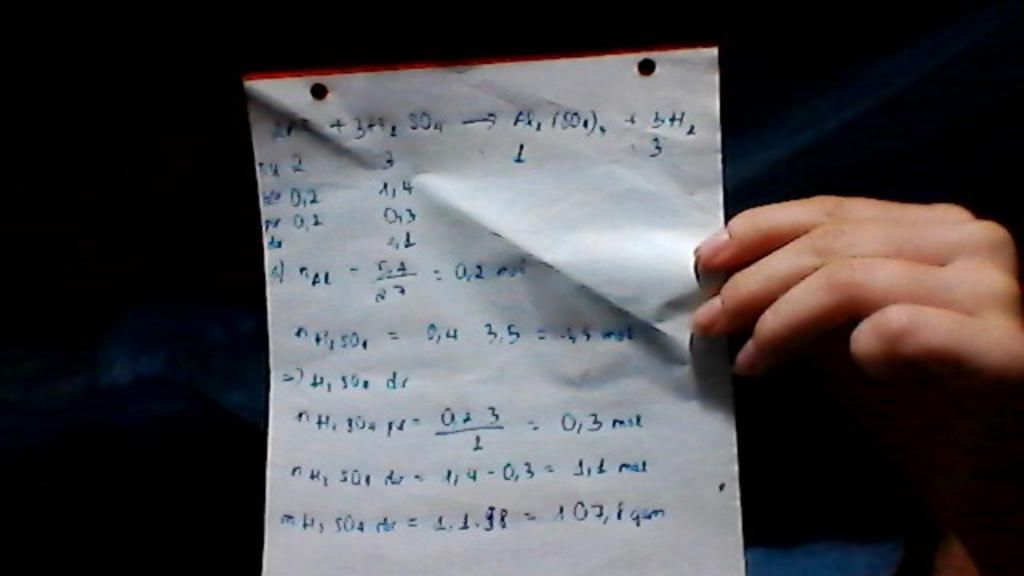 2Al + 3H₂SO₄ → Al₂(SO₄)₃ + 3H₂
2 3 1 3
0,2 1,4
pư 0,2 0,3
dư 1,1
a) nAl = 5.4/27 = 0,2 mol
nH₂SO₄ = 0,4 3,5 = 1,4 mol
=> H₂SO₄ dư
nH₂SO₄ pư = 0,2 3/2 = 0,3 mol
nH₂SO₄ dư = 1,4 - 0,3 = 1,1 mol
mH₂SO₄ dư = 1.1.98 = 107,8 gam